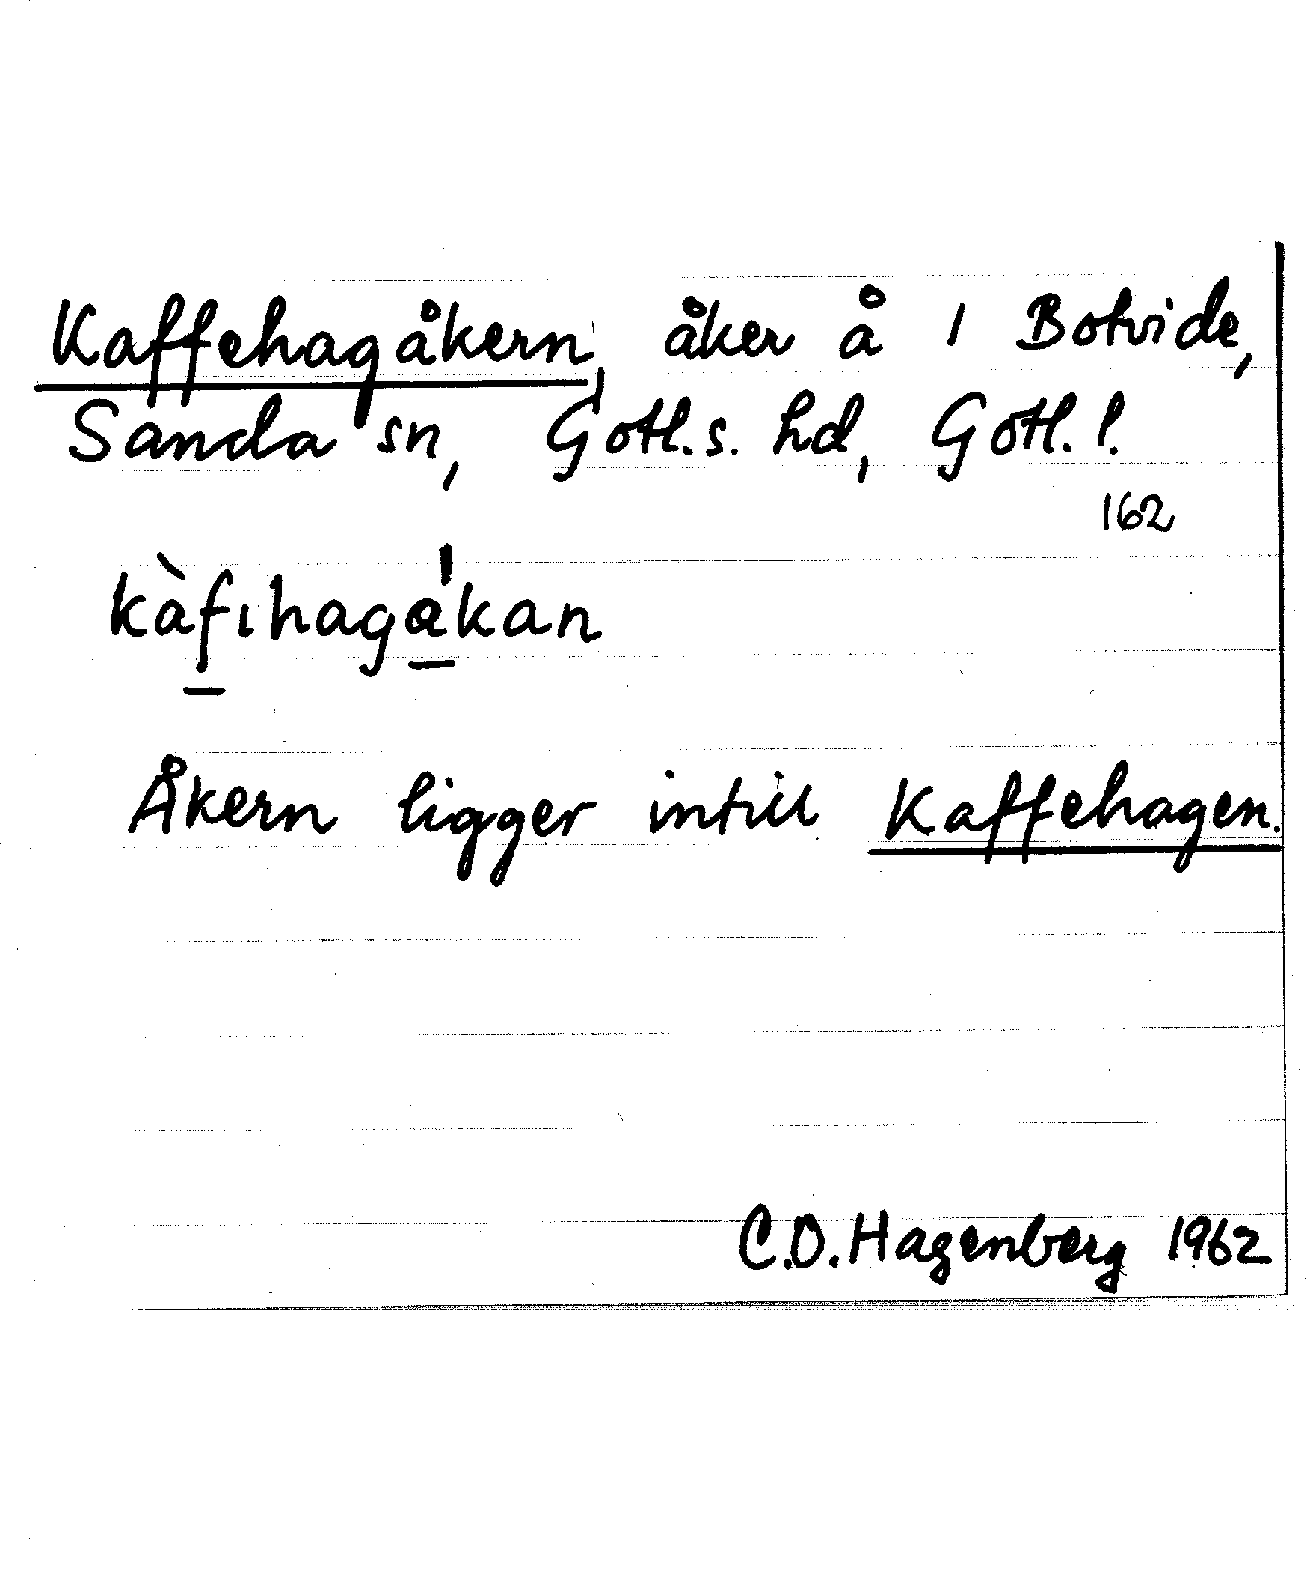 Kaffehagåkern, åker å 1 Botvide,
Sanda sn, Gotl. s. hd, Gotl. l.
162
kàf̠ıhaga̠̍kan
Åkern ligger intill Kaffehagen.
C.O. Hagenberg 1962